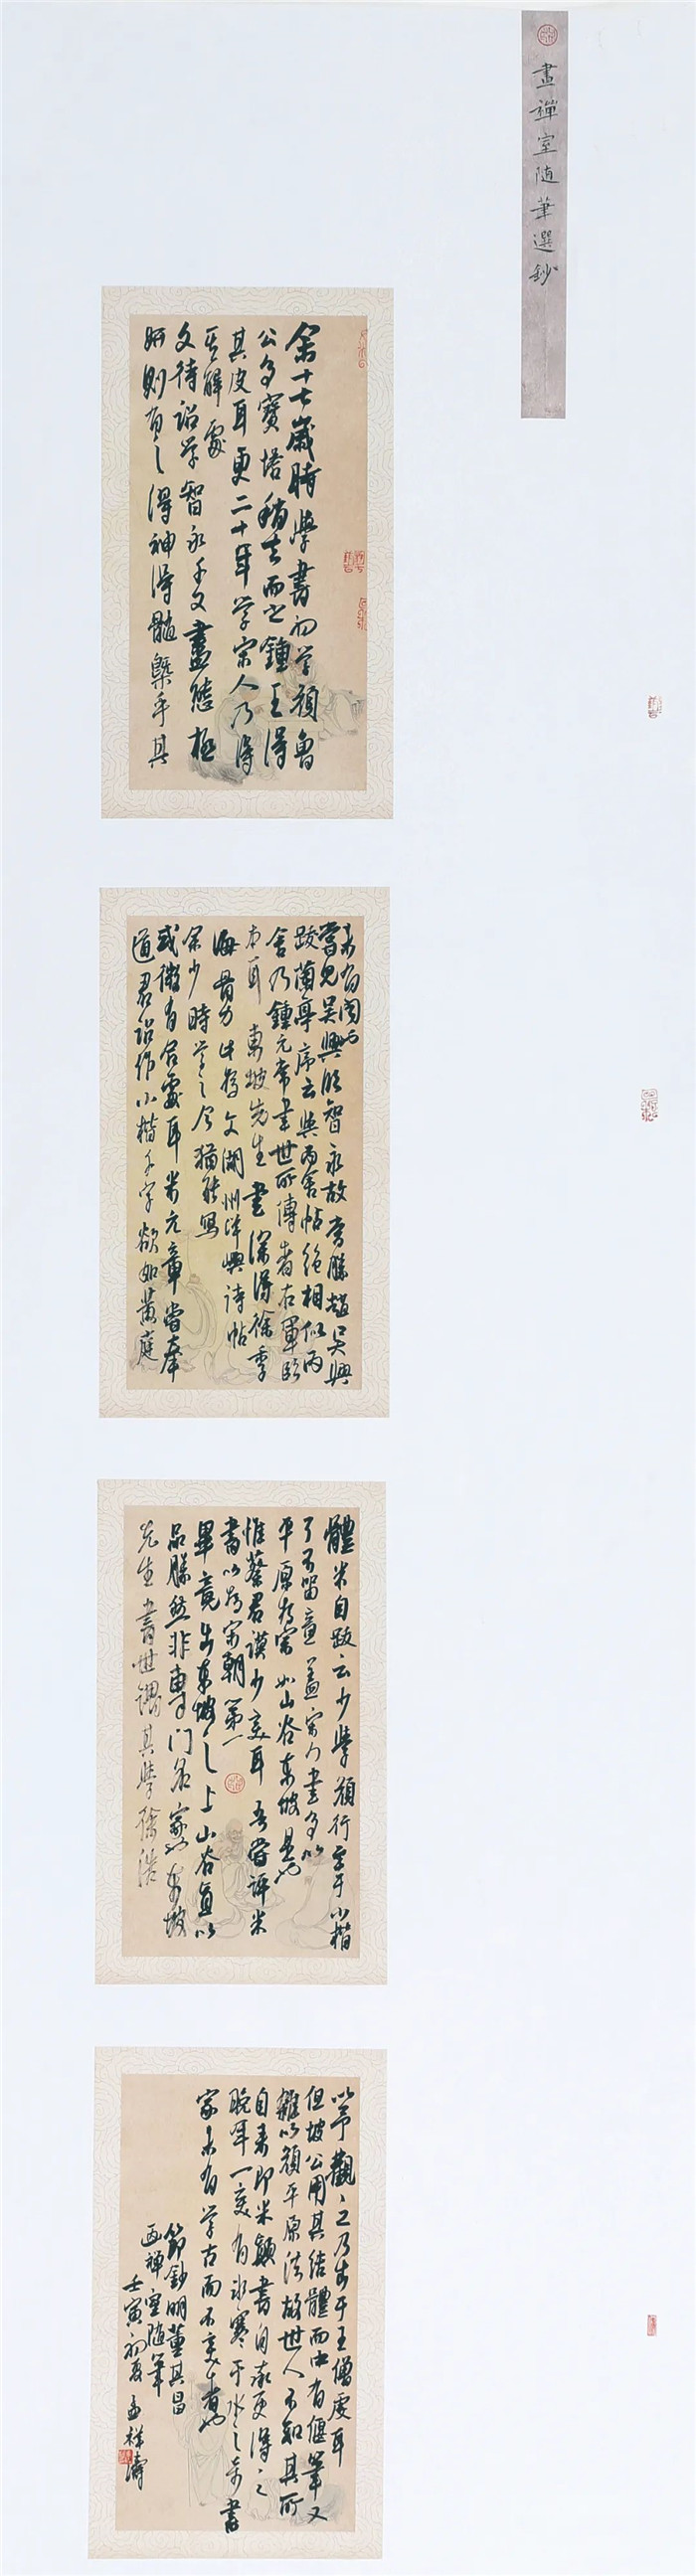 畫禪室隨筆選鈔
余十七歲時學書初學顏魯
公多寶塔稍去而之鍾王得
其皮耳更二十年學宋人乃得
其解處
文待詔学智永千文盡態極
妍則有之得神得髓槩乎其
未有聞也
嘗見吳興臨智永故當勝趙吳興
跋蘭亭序云與丙舍帖絕相似丙
舍乃鍾元常書世所傳者右軍臨
本耳 東坡先生書深得徐季
海骨力此為文湖州洋嶼詩帖
余少時学之今猶能寫
或微有合處耳米元章嘗奉
道君詔作小楷千字欲如黃庭
體米自跋云少學顏行至于小楷
了不留意蓋宋人書多以
平原為宗如山谷東坡是也
惟蔡君謨少變耳吾嘗評米
書以為宋朝第一
畢竟出東坡之上山谷直以
品勝然非專門名家也東坡
先生書世謂其學徐浩
以予觀之乃出于王僧虔耳
但坡公用其結體而中有偃筆又
雜以顏平原法故世人不知其所
自來即米顛書自率更得之
晚年一變有冰寒于水之奇書
家未有学古而不變者也
節鈔明董其昌
画禅室随筆
壬寅初夏孟祥濤